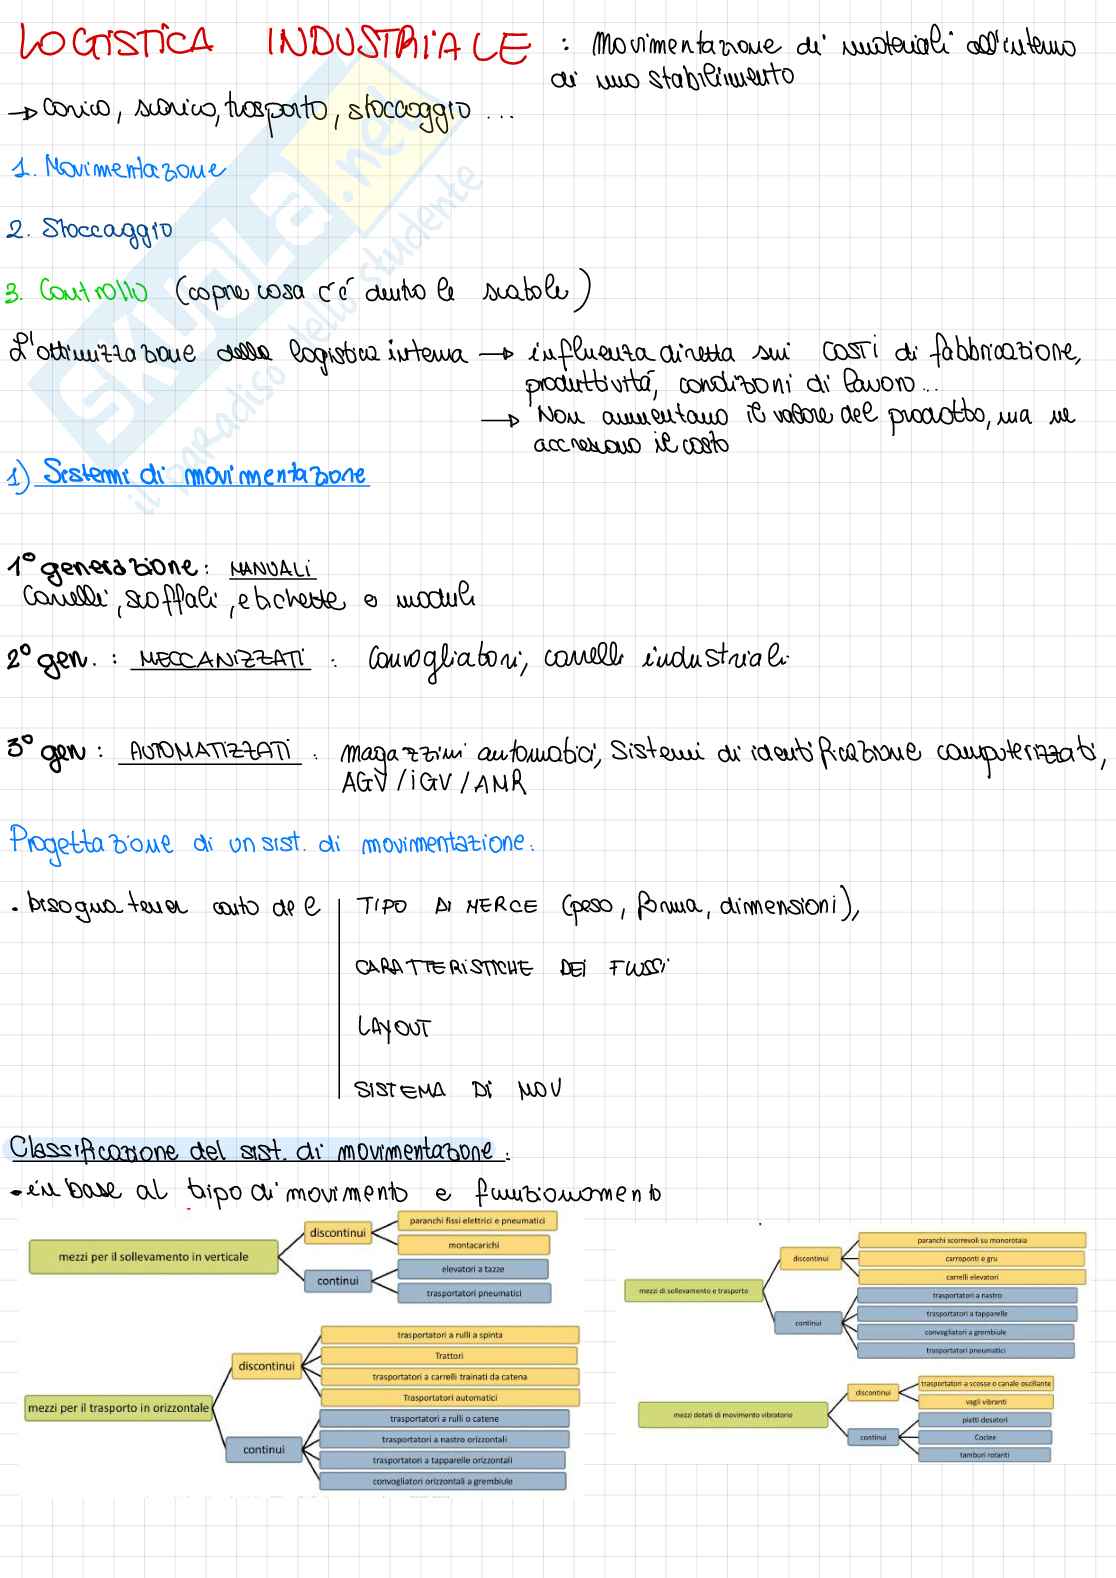 LOGISTICA INDUSTRIALE : movimentazione di materiali all'interno
di uno stabilimento
→ carico, scarico, trasporto, stoccaggio ...
1. Movimentazione
2. Stoccaggio
3. Controllo (capire cosa c'è dentro le scatole)
L'ottimizzazione della logistica interna → influenza diretta sui COSTI di fabbricazione,
produttività, condizioni di lavoro...
→ Non aumentano il valore del prodotto, ma ne
accrescono il costo
1) Sistemi di movimentazione
1° generazione: MANUALI
Carrelli, scaffali, etichette e moduli
2° gen. : MECCANIZZATI : Convogliatori, carrelli industriali
3° gen : AUTOMATIZZATI : magazzini automatici, sistemi di identificazione computerizzati,
AGV / iGV / AMR
Progettazione di un sist. di movimentazione:
• bisogna tener conto del TIPO DI MERCE (peso, forma, dimensioni),
CARATTERISTICHE DEI FLUSSI
LAYOUT
SISTEMA DI MOV
Classificazione del sist. di movimentazione:
• in base al tipo di movimento e funzionamento
mezzi per il sollevamento in verticale
discontinui
paranchi fissi elettrici e pneumatici
montacarichi
continui
elevatori a tazze
trasportatori pneumatici
mezzi per il trasporto in orizzontale
discontinui
trasportatori a rulli a spinta
Trattori
trasportatori a carrelli trainati da catena
Trasportatori automatici
continui
trasportatori a rulli o catene
trasportatori a nastro orizzontali
trasportatori a tapparelle orizzontali
convogliatori orizzontali a grembiule
mezzi di sollevamento e trasporto
discontinui
paranchi scorrevoli su monorotaia
carroponti e gru
carrelli elevatori
continui
trasportatori a nastro
trasportatori a tapparelle
convogliatori a grembiule
trasportatori pneumatici
mezzi dotati di movimento vibratorio
discontinui
trasportatori a scosse o canale oscillante
vagli vibranti
continui
piatti dosatori
Coclee
tamburi rotanti
SKUOLA.net
il paradiso dello studente